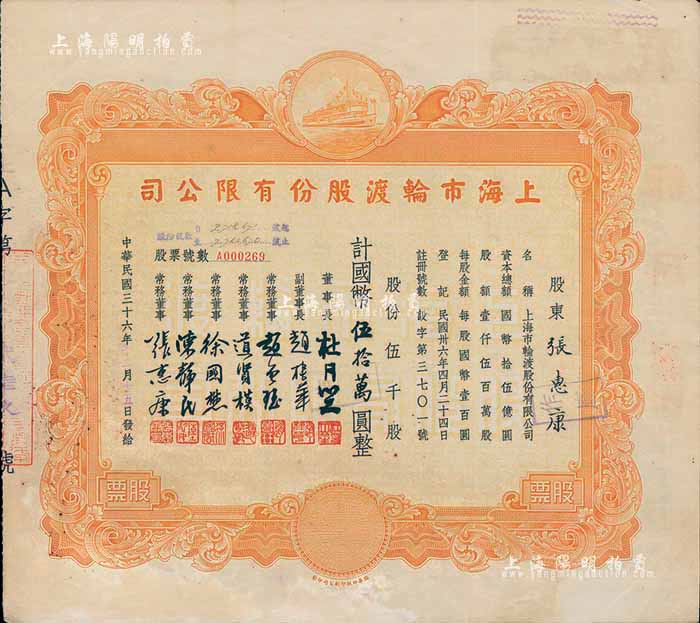 上海陽明拍賣
www.yangmingauction.com
上海市輪渡股份有限公司
股東 張惠康
名稱 上海市輪渡股份有限公司
資本總額 國幣拾伍億圓
股額 壹仟伍百萬股
每股金額 每股國幣壹百圓
登記 民國卅六年四月二十四日
註冊號數 設字第三七〇一號
股份伍千股
計國幣伍拾萬圓整
董事長 杜月笙
副董事長
常務董事
常務董事
常務董事 徐國懋
常務董事 陳靜民
常務董事 張惠康
股票號數 A000269
中華民國三十六年 月 日發給
股票
股票
上海陽明拍賣
www.yangmingauction.com
上海陽明拍賣
www.yangmingauction.com